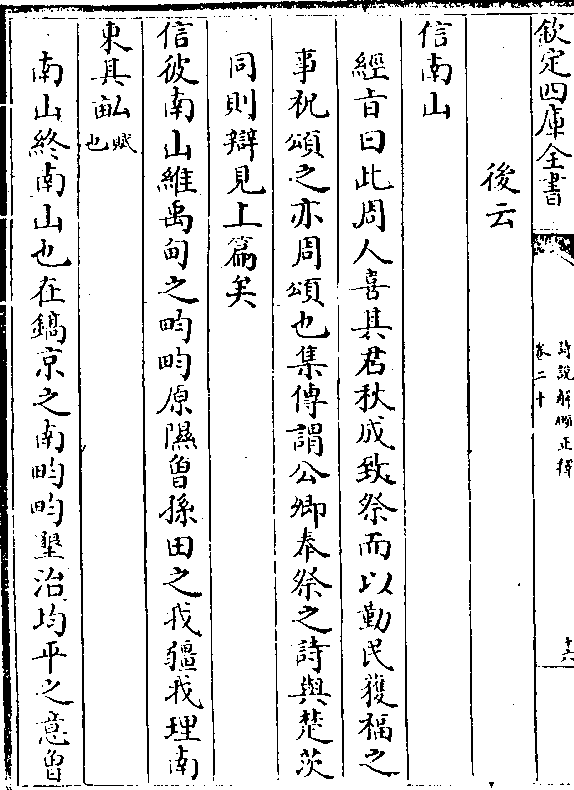 欽定四庫全書
詩說解頤正釋
卷二十
十六
後云
信南山
經旨曰此周人喜其君秋成致祭而以勤民獲福之
事祝頌之亦周頌也集傳謂公卿奉祭之詩與楚茨
同則辯見上篇矣
信彼南山維禹甸之畇畇原隰曾孫田之我疆我理南
東其畝賦也
南山終南山也在鎬京之南畇畇墾治均平之意曾